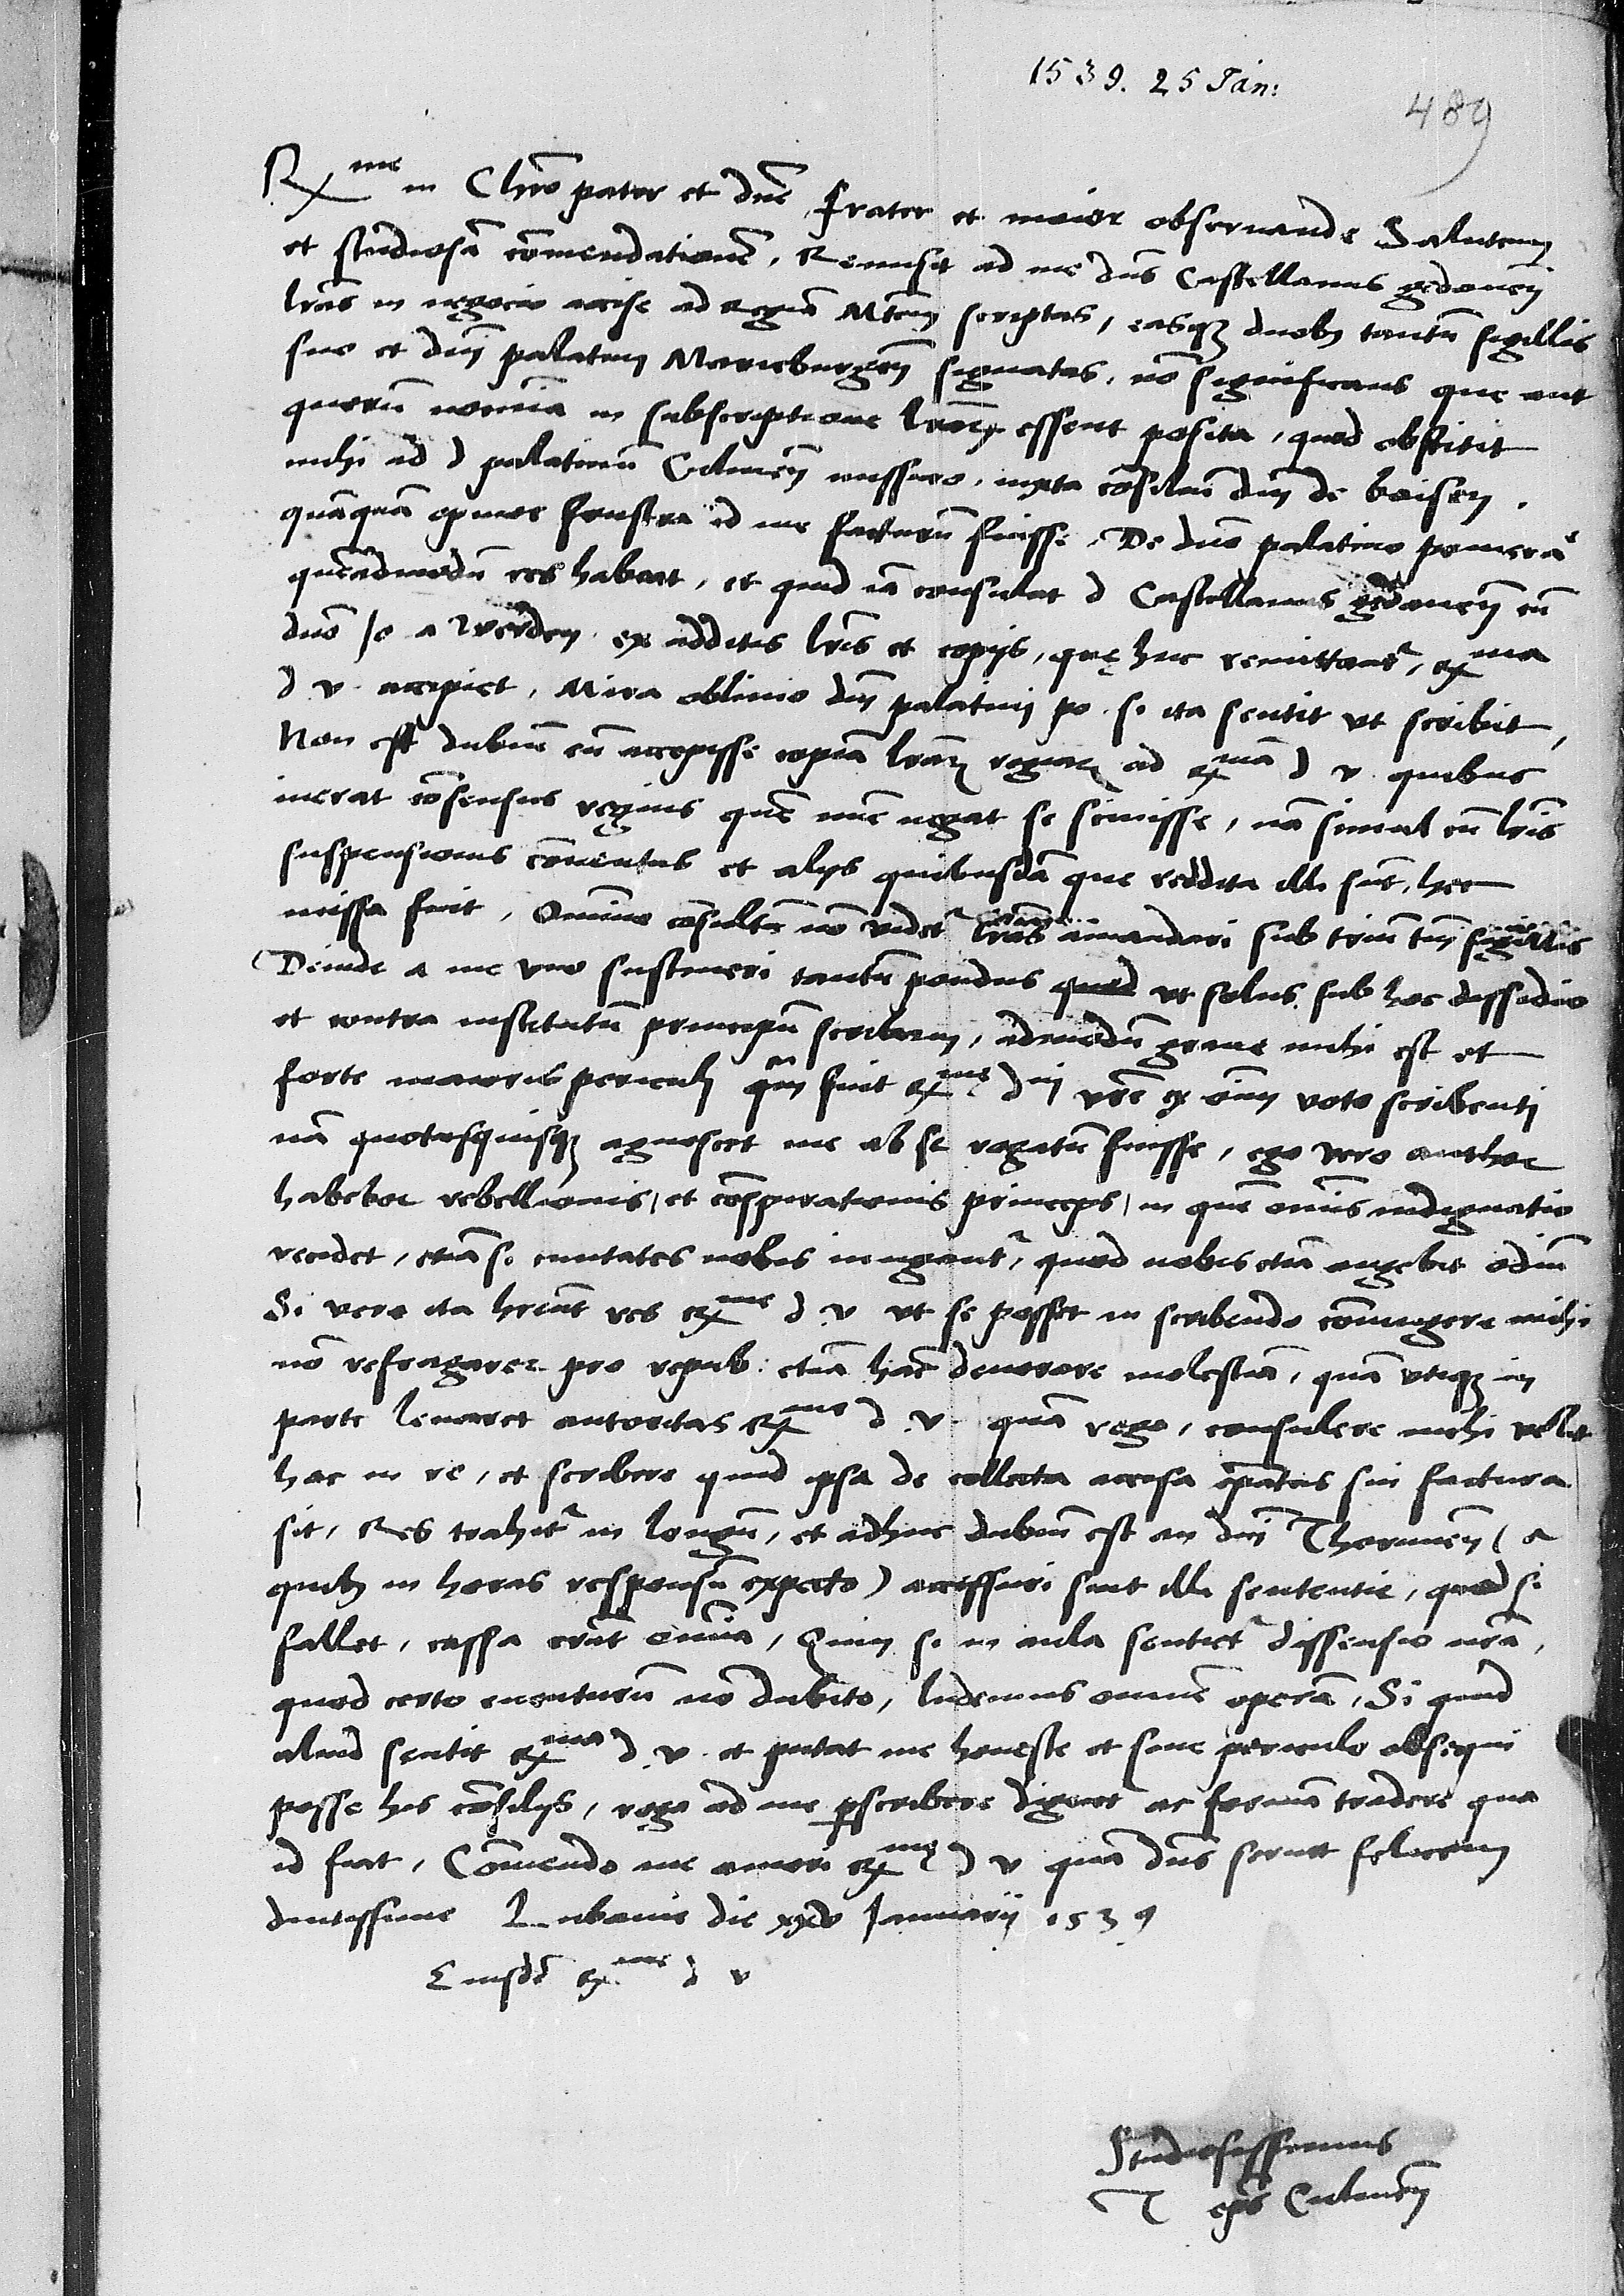 1539. 25 Jan:
489
R͞x me in Chro͞ pater et dn͞e Frater et maior obseruande Salutem
et studiosa͞ co͞mendatione͞. Remisit ad me dn͞s Castellanus gedanen͞
lr͞as in negocio accise ad Regia͞ Mt͞em scriptas, easq₃ duob₃ tantu͞ sigillis
suo et dn͞i palatini Marieburgen͞ signatas, no͞ significans que aut
quoru͞ nomina in subscriptione lr͞aru͞ essent posita, quod obstitit
mihi ad d palatinu͞ Culmen͞ missuro, iuxta co͞siliu͞ dn͞i de baisen.
qua͞qua͞ opinor frustra id me facturu͞ fuisse. De dn͞o palatino pomera͞
que͞admodu͞ res habeat, et quid ia͞ consulat d Castellanus gedanen͞ cu͞
dn͞o Jo a Werden ex additis lr͞is et copijs, quę huc remittant͞, R͞x ma
d v accipiet. Mira obliuio dn͞i palatini po. si ita sentit vt scribit,
Non est dubiu͞ eu͞ accepisse copia͞ lr͞aru͞ regiaru͞ ad R͞x ma͞ d v. quibus
inerat co͞sensus regius que͞ nunc negat se sciuisse, na͞ simul cu͞ lr͞is
suspensionis co͞uentus et alijs quibusda͞ que reddita illi sunt, hec
missa fuit. Omnino co͞sultu͞ no͞ videt͞ lr͞as amandari sub triu͞ tm͞ sigillis
Deinde a me vno sustineri tantu͞ pondus quod vt solus sub hoc dissidio
et contra institutu͞ principu͞ scriberem, admodu͞ graue mihi est et
forte maioris periculi q͞m fuit R͞x mę d͞ni vr͞e ex o͞im voto scribenti
na͞ quotusquisq₃ agnoscet me ab se rogatu͞ fuisse, ego vero author
habebor rebellionis, et co͞spirationis princeps, in que͞ om͞is indignatio
recidet, etia͞ si ciuitates nobis iungant͞, quod nobis etia͞ augebit odiu͞
Si vero ita h͞rent res R͞x me d v vt se posset in scribendo co͞iungere mihi
no͞ refragarer pro repub: etia͞ hanc deuorare molestia͞, qua͞ vtiq₃ in
parte leuaret autoritas R͞x me d v. qua͞ rogo, consulere mihi velit
hac in re, et scribere quid ipsa de collecta accisa ep͞atus sui factura
sit, Res trahit͞ in longu͞, et adhuc dubiu͞ est an dn͞i Thorunen͞ (a
quib₃ in horas respensu͞ expecto) accessuri sint illi sententie, quod si
fallet, cassa eru͞t omnia, Quin si in aula sentiet͞ dissensio nr͞a,
quod certo euenturu͞ no͞ dubito, ludemus omne͞ opera͞, Si quid
aliud sentit R͞x ma d v. et putat me honeste et sine periculo obsequi
posse his co͞silijs, rogo ad me p͞scribere dignet͞ ac forma͞ tradere qua
id fiat, Co͞mendo me amori R͞x mę d v qua͞ dn͞s seruet felicem
diutissime Lubauie die xxv Januarij 1539
Eiusde͞ R͞x me d v
Studiosissimus
T ep͞s Culmen͞